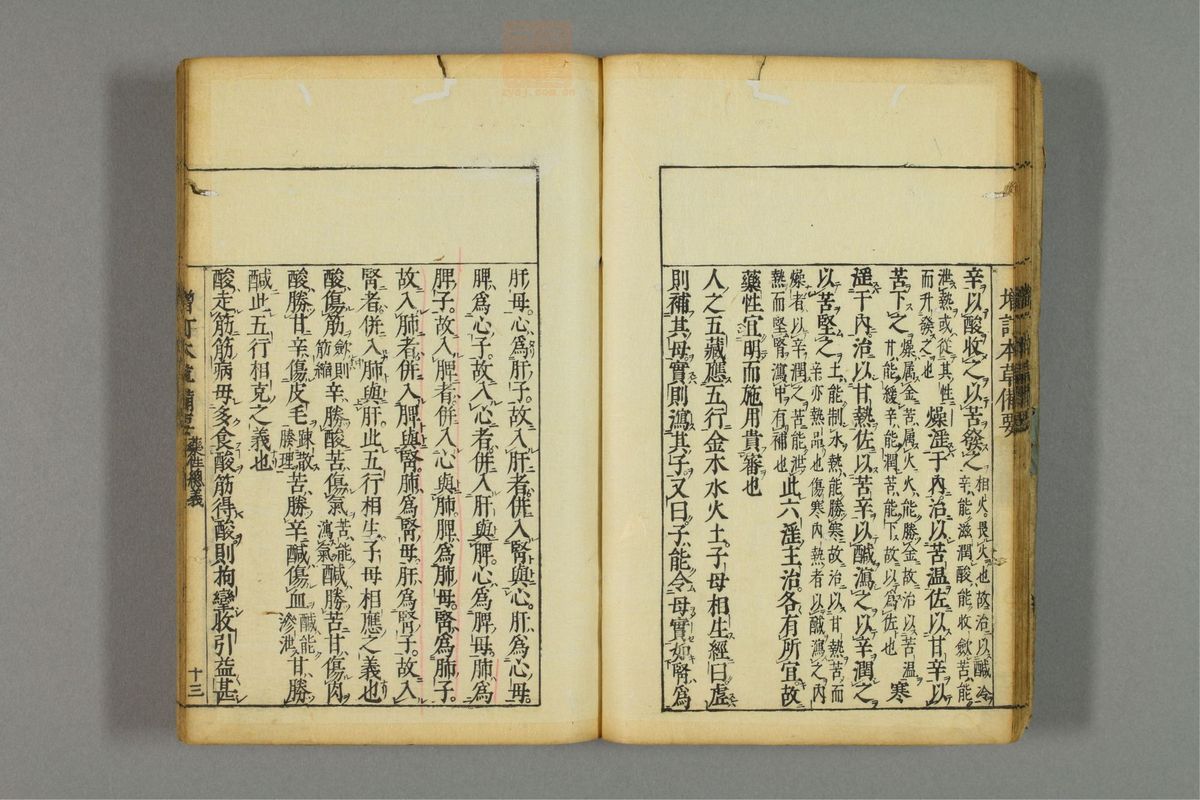 增訂本草備要
辛以酸收之以苦發之相火畏火也故治以鹹冷辛能滋潤酸能收斂苦能
泄熱或從其性而升發之也燥淫于內治以苦温佐以甘辛以
苦下之燥属金苦属火火能勝金故治以苦温甘能緩辛能潤苦能下故以爲佐也寒
淫于內治以甘熱佐以苦辛以鹹瀉之以辛潤之
以苦堅之土能制水熱能勝寒故治以甘熱苦而辛亦熱品也傷寒內熱者以鹹瀉之內
燥者以辛潤之苦能泄熱而堅腎瀉中有補也此六淫主治各有所宜故
藥性宜明而施用貴審也
人之五藏應五行金木水火土子母相生經曰虛
則補其母實則瀉其子又曰子能令母實如腎爲
肝母心爲肝子故入肝者併入腎與心肝爲心母
脾爲心子故入心者併入肝與脾心爲脾母肺爲
脾子故入脾者併入心與肺脾爲肺母腎爲肺子
故入肺者併入脾與腎肺爲腎母肝爲腎子故入
腎者併入肺與肝此五行相生子母相應之義也
酸傷筋斂則筋縮辛勝酸苦傷氣苦能瀉氣鹹勝苦甘傷肉
酸勝甘辛傷皮毛疎散腠理苦勝辛鹹傷血鹹能滲泄甘勝
鹹此五行相克之義也
酸走筋筋病毋多食酸筋得酸則拘攣收引益甚
增訂本草備要 藥性總義 十三
zydj.com.cn